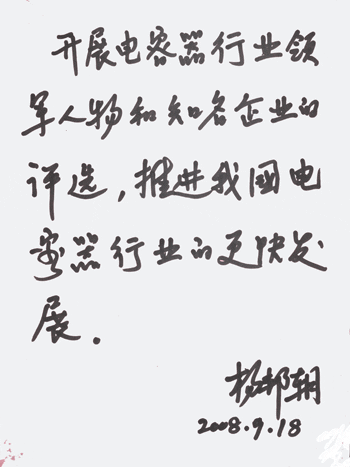 开展电容器行业领
军人物和知名企业的
评选,推进我国电
容器行业的更快发
展.
杨邦朝
2008.9.18